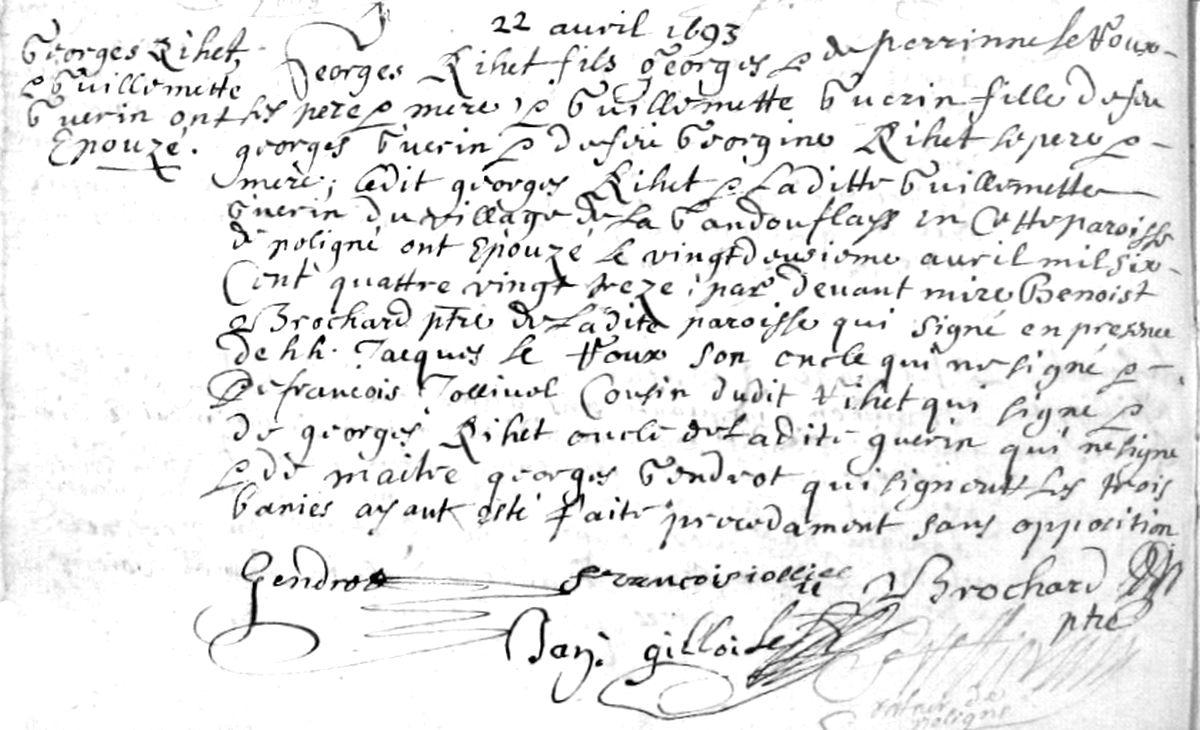 22 avril 1693
Georges Rihet
& Guillemette
Guerin ont
Epouzé.
Georges Rihet fils Georges & de perrinne le Roux
les pere & mere, & Guillemette Guerin fille de feu
georges Guerin & de feu Georgine Rihet le pere &
mere; ledit georges Rihet & laditte Guillemette
Guerin du village de la en Cette paroisse
de poligné ont Epouzé le vingt deusieme avril mil six
Cent quattre vingt treze; par devant mire Benoist
Brochard ptre de ladite paroisse qui signé en presence
de hh. Jacques le Roux son oncle qui ne signé &
De francois Jollivel Cousin dudit Rihet qui signé &
de georges Rihet oncle de ladite guerin qui ne signe
& de maitre georges Gendrot qui signent les trois
banies ayant esté faite precedament sans opposition
Gendrot francois iollivel Brochard
ptre
Ban. gilloi
de
poligné